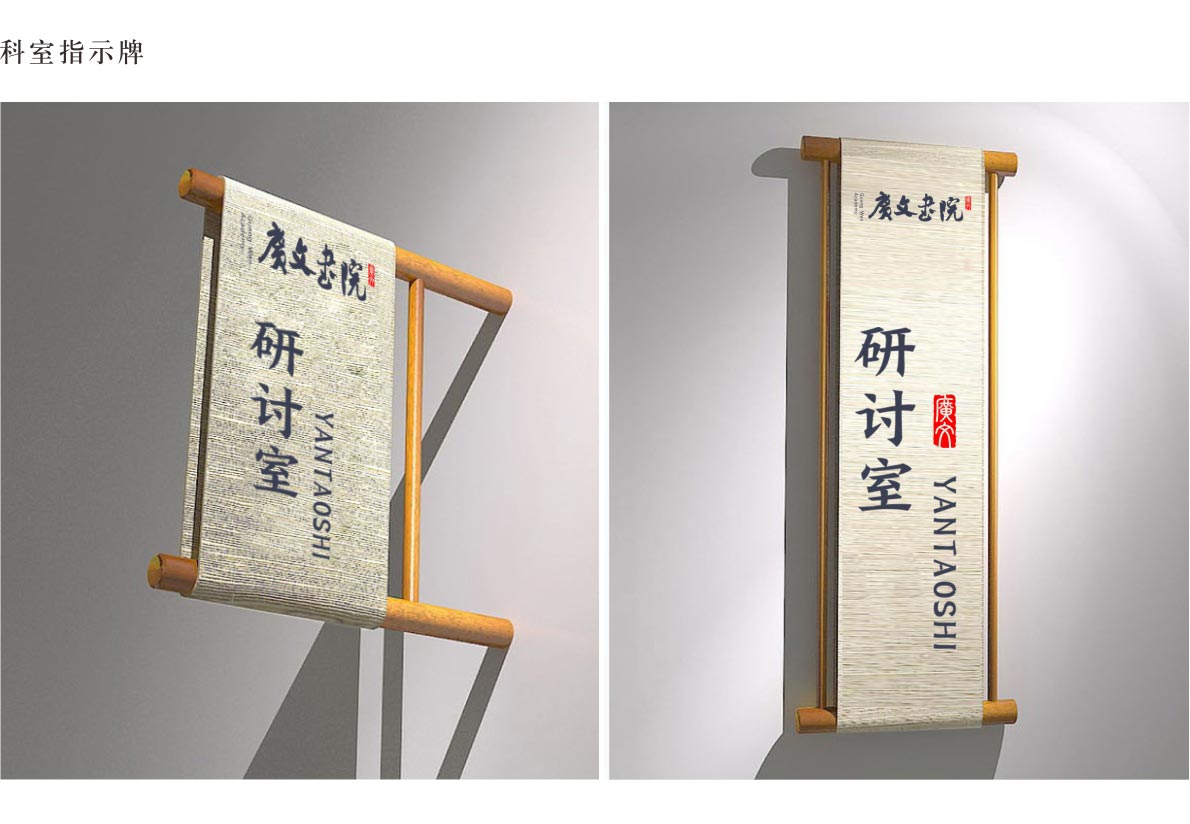 科室指示牌
Guang Wen
Academy
廣文书院
廣文
研讨室
YANTAOSHI
Guang Wen
Academic
廣文书院
廣文
研讨室
廣文
YANTAOSHI